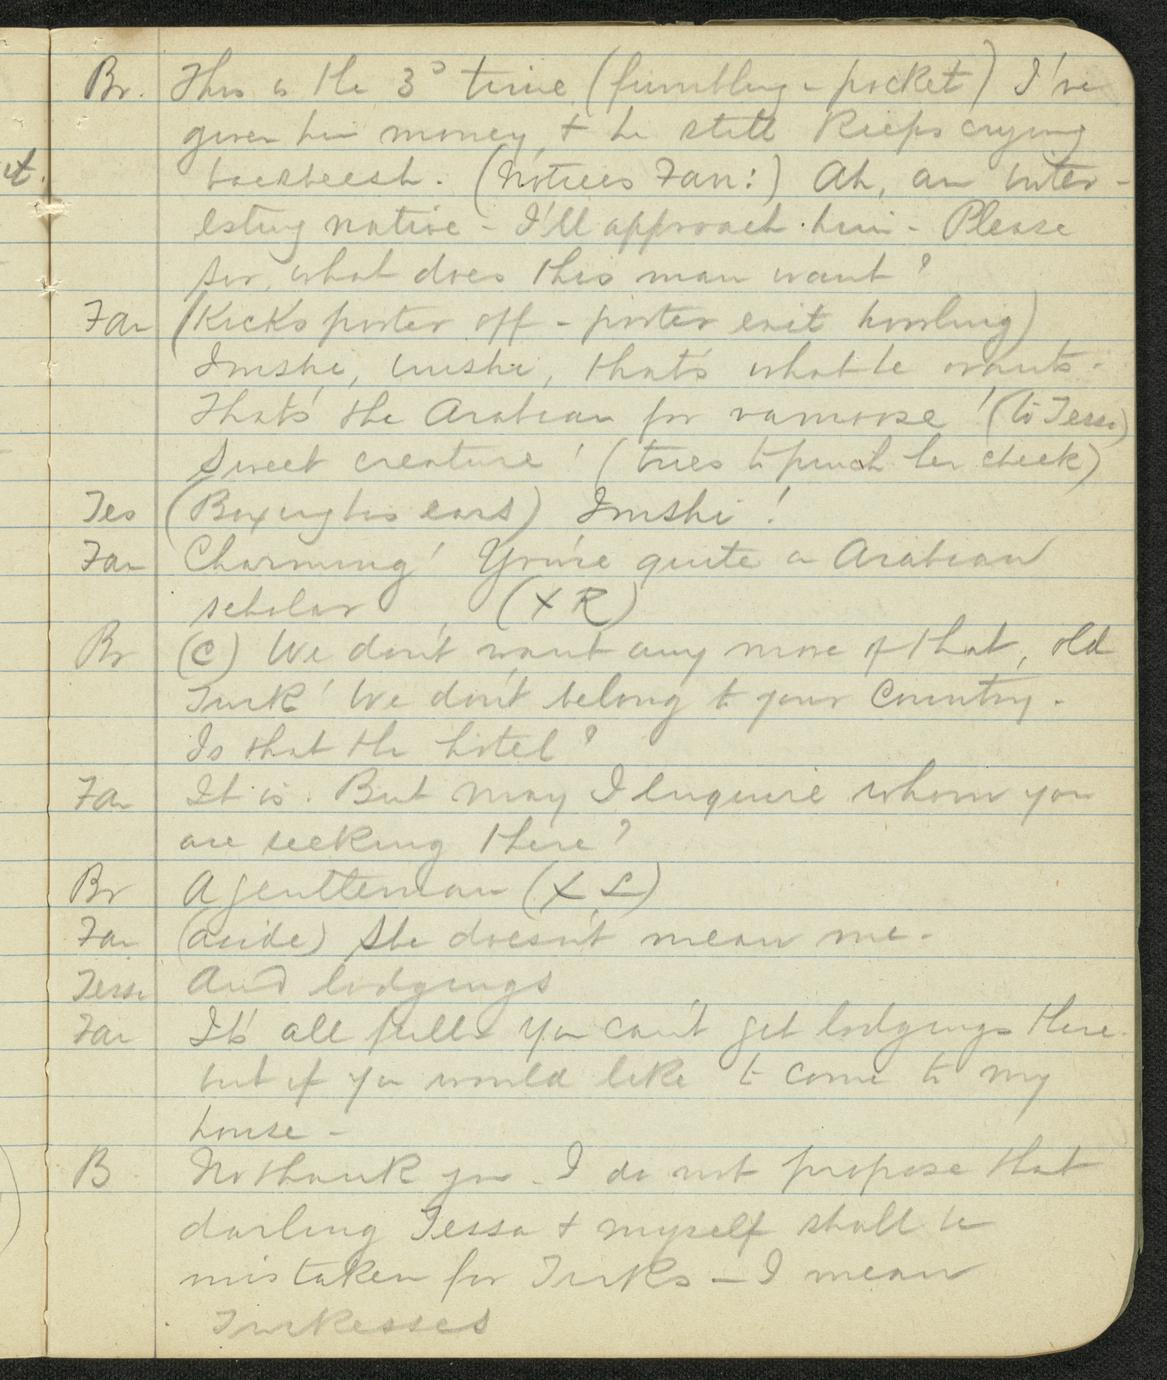 it.
Br. This is the 3d time (fumbling in pocket) I've
given him money & he still keeps crying
backsheesh. (Notices Fan:) Ah, an inter-
esting native - I'll approach him - Please
sir, what does this man want?
Fan (Kicks porter off - porter exit howling)
Imshi, imshi, that's what he wants.
That's the Arabian for vamoose! (to Tessa)
Sweet creature! (tries to pinch her cheek)
Tes (Boxing his ears) Imshi!
Fan Charming! You're quite a Arabian
scholar (X R)
Br (C) We don't want any more of that, old
Turk! We don't belong to your Country.
Is that the hotel?
Fan It is. But may I enquire whom you
are seeking there?
Br A gentleman (X L)
Fan (aside) She doesn't mean me.
Tessa And lodgings
Fan It's all full. You can't get lodgings there.
but if you would like to come to my
house -
B No thank you. I do not propose that
darling Tessa & myself shall be
mistaken for Turks - I mean
Turkesses